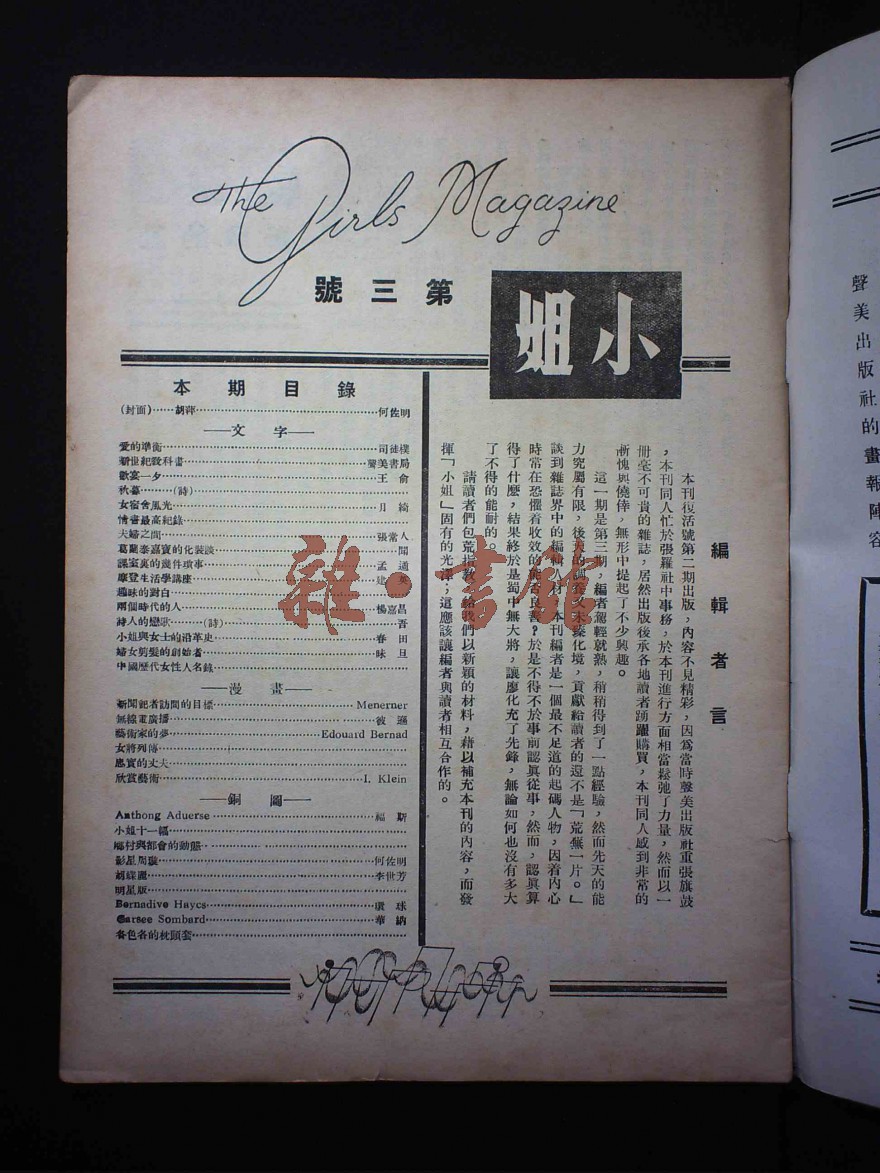 The Girls Magazine
第三號
小姐
本期目錄
(封面)……胡萍……何佐明
——文字——
愛的準衡……司徒樸
新世紀教科書……聲美書局
歡宴一夕……王俞
秋暮……(詩)……
女宿舍風光……月綺
情書最高紀錄……
夫婦之間……張常人
葛蘭泰嘉寶的化裝談……聞
課室裏的幾件瑣事……孟通
摩登生活學講座……建英
趣味的對白……
兩個時代的人……楊嘉昌
詩人的戀歌……(詩)……吾
小姐與女士的沿革史……春田
婦女剪髮的創始者……昧旦
中國歷代女性人名錄……
——漫畫——
新聞記者訪問的目標……Menerner
無線電廣播……彼遜
藝術家的夢……Edouard Bernad
女將列傳……
忠實的丈夫……
欣賞藝術……I. Klein
——銅圖——
Anthong Aduerse……福斯
小姐十一幅……
鄉村與都會的動態……
影星周璇……何佐明
胡蝶麗……李世芳
明星版……
Bernadive Haycs……環球
Carsee Sombard……華納
各色各的枕頭套……
編輯者言
本刊復活號第二期出版,內容不見精彩,因為當時聲美出版社重張旗鼓
,本刊同人忙於張羅社中事務,於本刊進行方面相當鬆弛了力量,然而以一
冊毫不可貴的雜誌,居然出版後承各地讀者踴躍購買,本刊同人感到非常的
慚愧與僥倖,無形中提起了不少興趣。
這一期是第三期,編者駕輕就熟,稍稍得到了一點經驗,然而先天的能
力究屬有限,後天的調養又未臻化境,貢獻給讀者的還不是「荒蕪一片。」
談到雜誌界中的編輯人材,本刊編者是一個最不足道的起碼人物,因着內心
時常在恐懼着收效的能否良善?於是不得不於事前認眞從事,然而,認眞算
得了什麼,結果終於是蜀中無大將,讓廖化充了先鋒,無論如何也沒有多大
了不得的能耐的。
請讀者們包荒指教,給我們以新穎的材料,藉以補充本刊的內容,而發
揮「小姐」固有的光澤;這應該讓編者與讀者相互合作的。
聲美出版社的畫報陣容
雜·書館